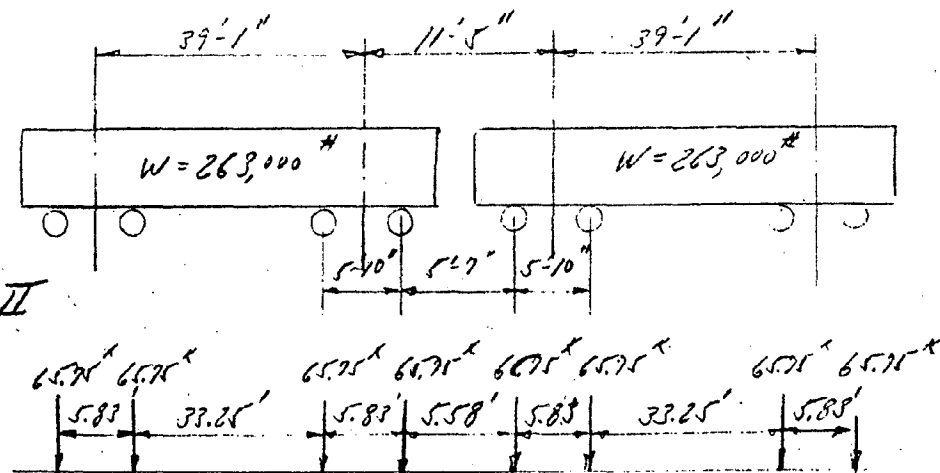 39'-1" 11'-5" 39'-1"
W = 263,000# W = 263,000#
5-10" 5'-7" 5-10"
II
65.75K 65.75K 65.75K 65.75K 65.75K 65.75K 65.75K 65.75K
5.83' 33.25' 5.83' 5.58' 5.83' 33.25' 5.83'